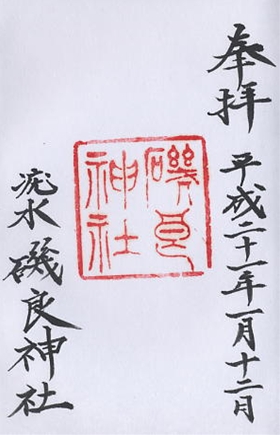 奉拝
平成二十一年一月十二日
磯良
神社
疣水磯良神社